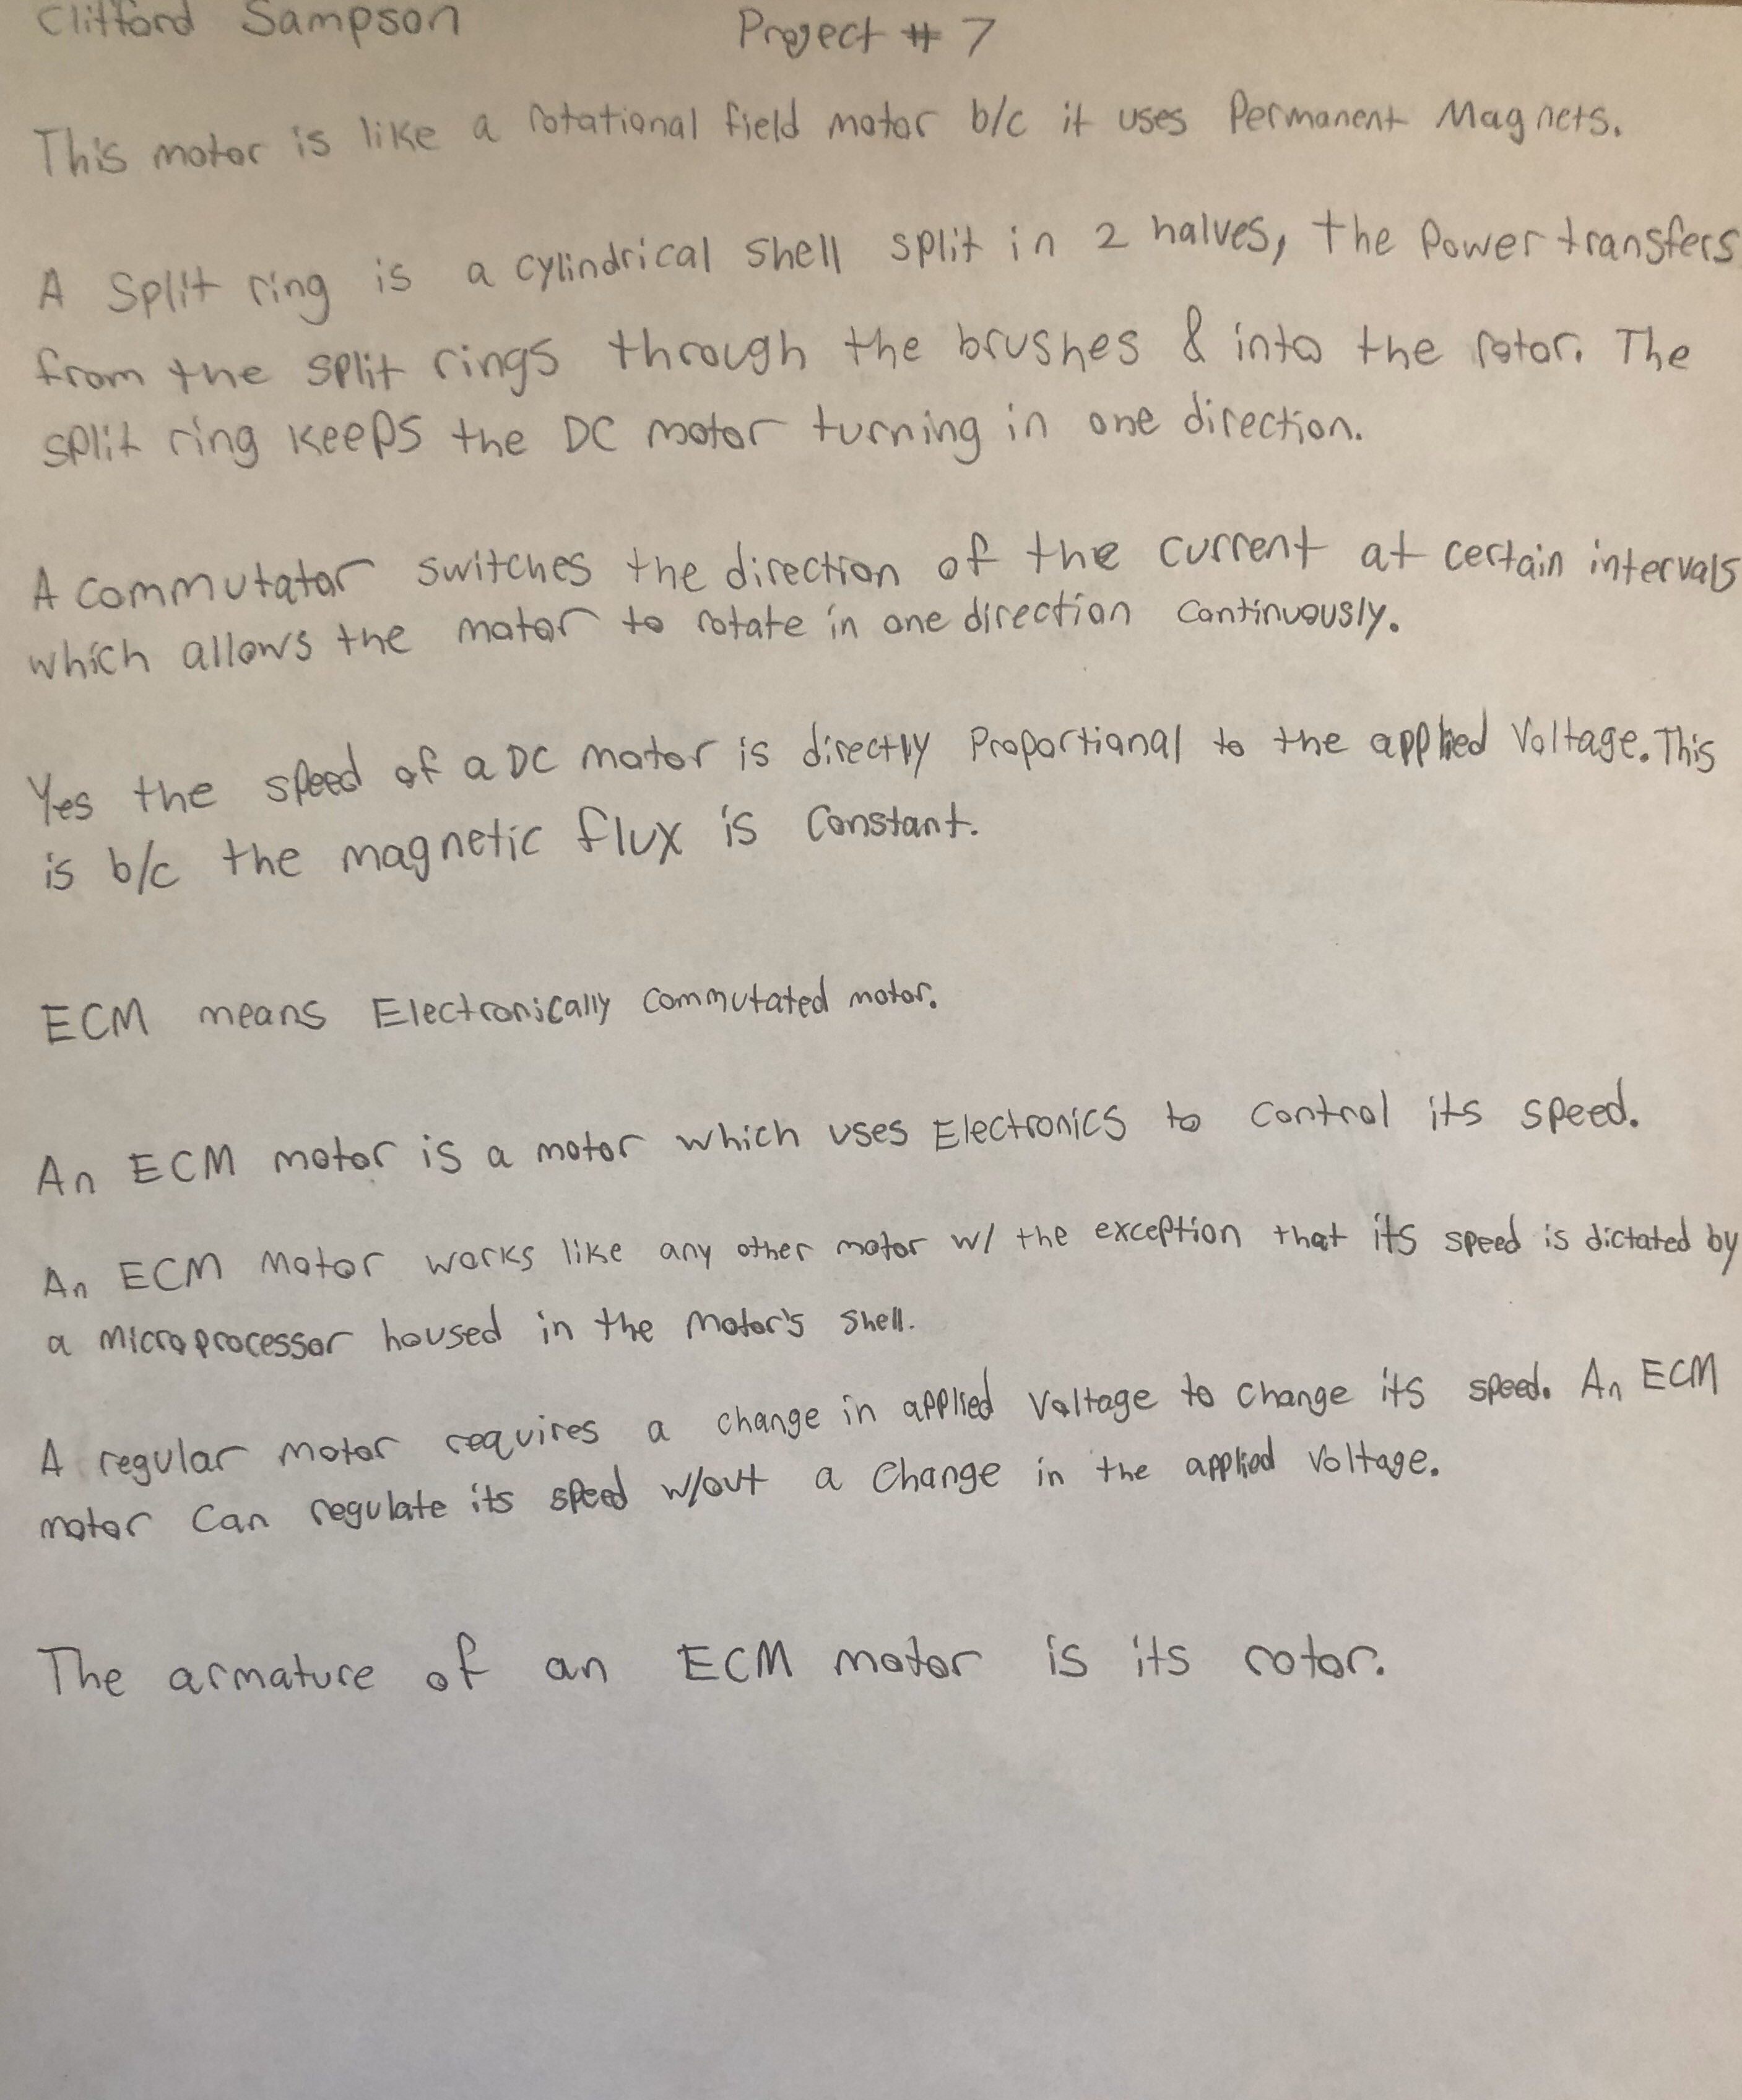 Clifford Sampson Project # 7
This motor is like a rotational field motor b/c it uses Permanent Magnets.
A Split ring is a cylindrical shell split in 2 halves, the Power transfers
from the split rings through the brushes & into the rotor. The
split ring keeps the DC motor turning in one direction.
A commutator switches the direction of the current at certain intervals
which allows the motor to rotate in one direction continuously.
Yes the speed of a DC motor is directly Proportional to the applied Voltage. This
is b/c the magnetic flux is Constant.
ECM means Electronically commutated motor.
An ECM motor is a motor which uses Electronics to control its speed.
An ECM Motor works like any other motor w/ the exception that its speed is dictated by
a Microprocessor housed in the Motor's Shell.
A regular motor requires a change in applied Voltage to change its speed. An ECM
motor Can regulate its speed w/out a Change in the applied Voltage.
The armature of an ECM motor is its rotor.